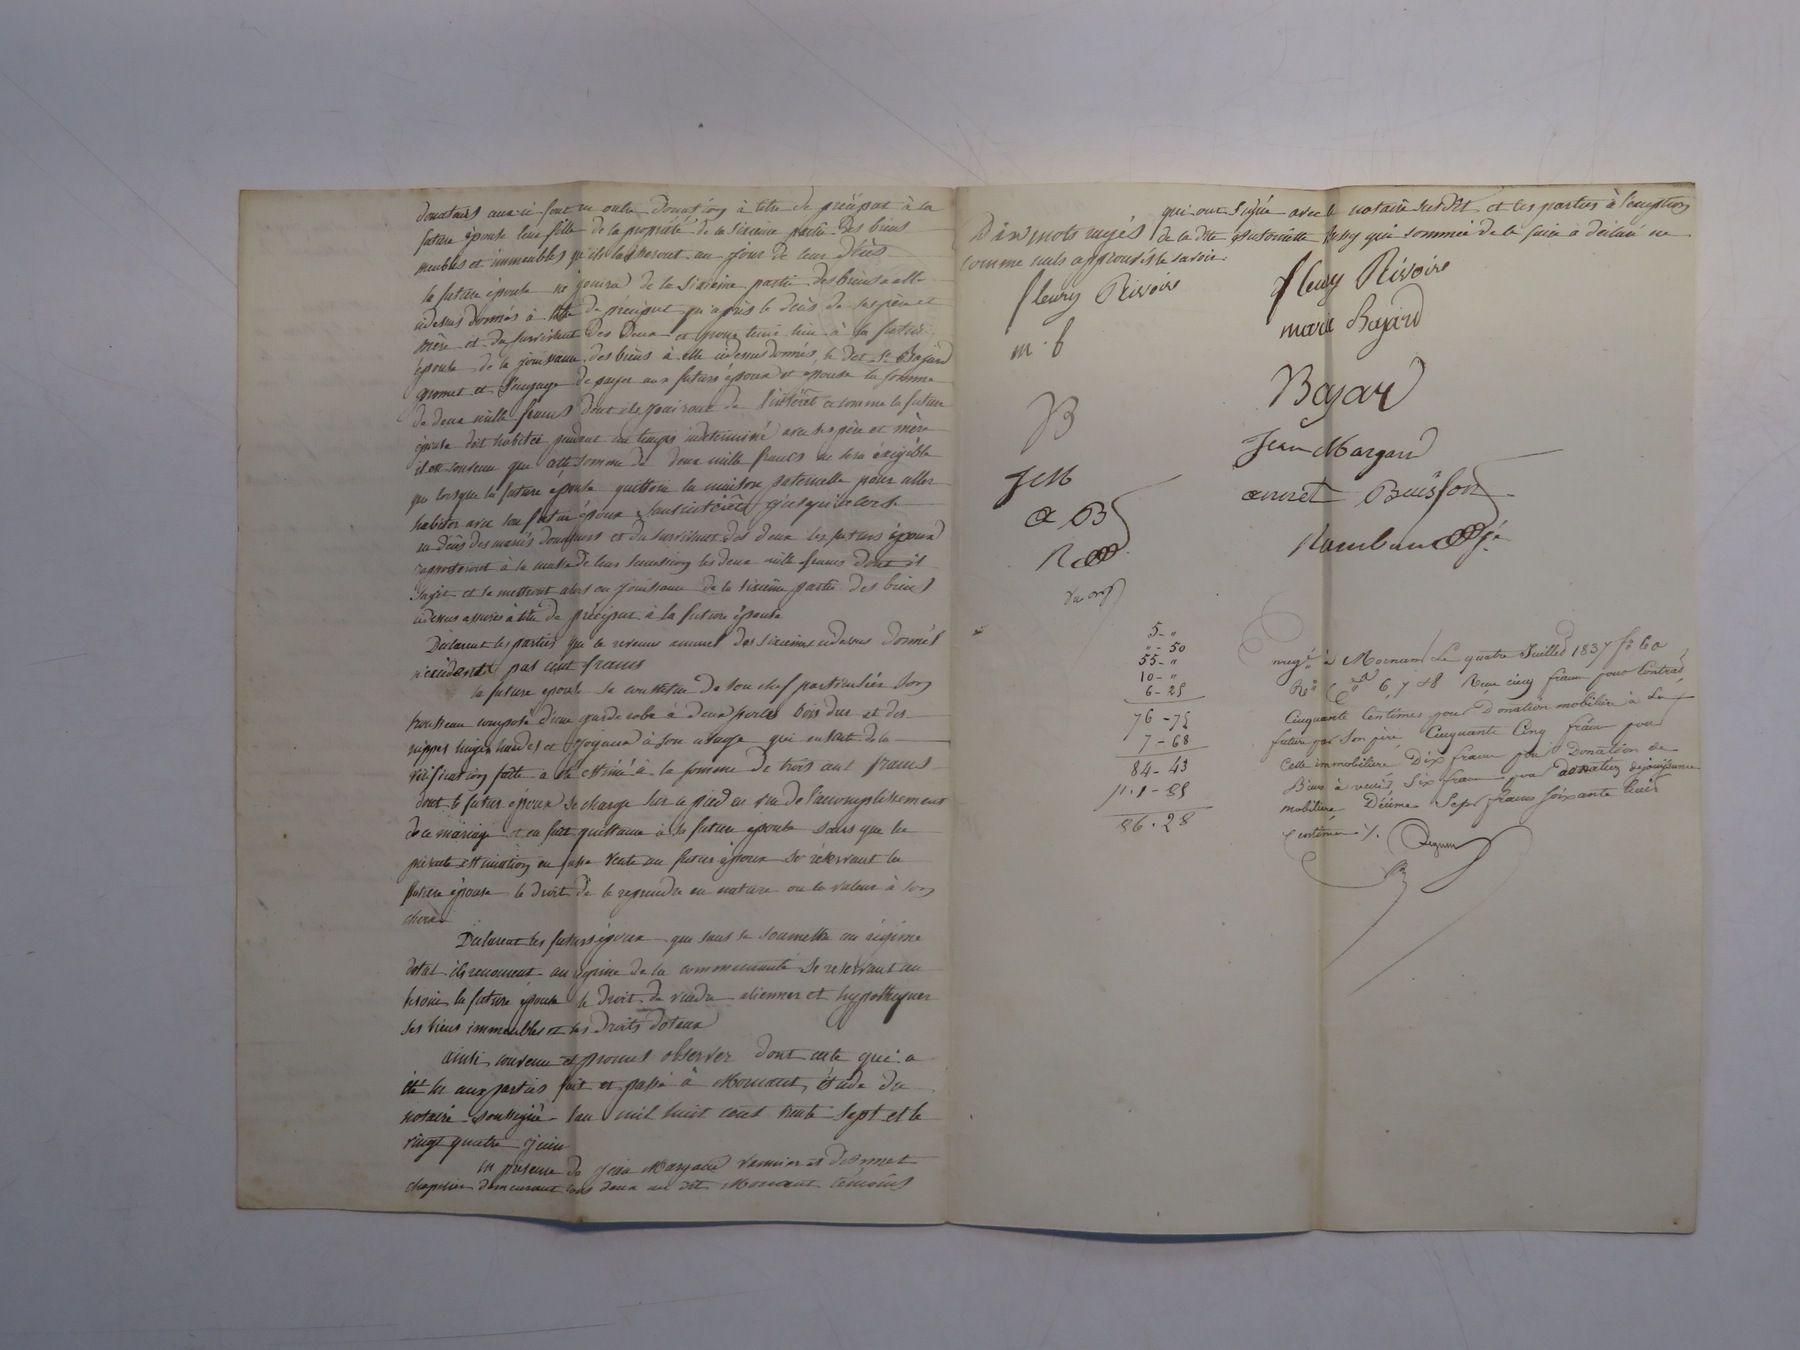 donateurs aussi font en outre donation à titre de préciput à la
future épouse leur fille de la propriété de la sixième partie des biens
meubles et immeubles qu'ils laisseront au jour de leur décès
la future épouse ne jouira de la sixième partie des biens à elle
cidessus donnés à titre de préciput qu'après le décès de ses père et
mère et du survivant des deux et pour tenir lieu à la future
épouse de la jouissance des biens à elle cidessus donnés, le dit Sr Bajard
promet et s'engage de payer aux futurs époux et épouse la somme
de deux mille francs dont ils jouiront de l'intérêt et comme la future
épouse doit habiter pendant un temps indéterminé avec ses père et mère
il est convenu que cette somme de deux mille francs ne sera exigible
que lorsque la future épouse quittera la maison paternelle pour aller
habiter avec son futur époux sans intérêts jusqu'alors
au décès des mariés donateurs et du survivant des deux les futurs époux
rapporteront à la masse de leur succession les deux mille francs dont il
s'agit et se mettront alors en jouissance de la sixième partie des biens
cidessus assurés à titre de préciput à la future épouse
Déclarent les parties que le revenu annuel des sixièmes cidessus donnés
n'excèdent pas cent francs
la future épouse se constitue de son chef particulier son
trousseau composé d'une garderobe à deux portes bois dur et des
nippes linges hardes et joyaux à son usage qui ensuite de la
vérification faite a été estimé à la somme de trois cent francs
dont le futur époux se charge sur ce pied en vue de l'accomplissement
de ce mariage et en fait quittance à la future épouse sans que la
présente estimation en fasse vente au futur époux se réservant la
future épouse le droit de le reprendre en nature ou la valeur à son
choix
Déclarent les futurs époux que sans se soumettre au régime
dotal ils renoncent au régime de la communauté se réservant au
besoin la future épouse le droit de vendre aliéner et hypothéquer
ses biens immeubles et les droits dotaux
ainsi convenu et promis observer dont acte qui a
été lu aux parties fait et passé à Mornant, étude du
notaire soussigné l'an mil huit cent trente sept et le
vingt quatre juin
en présence de Jean Margand et d'Annet
chapelier demeurant tous deux au dit Mornant témoins
qui ont signé avec le notaire susdit et les parties à l'exception
de la dite Antoinette qui sommée de le faire a déclaré ne
le savoir.
Dix mots rayés
comme nuls approuvés
fleury Rivoire
fleury Rivoire
m. b
marie Bajard
B
Bajard
J M
Jean Margand
a B
annet Buisson
R
5 - "
" - 50
55 - "
10 - "
6 - 25
76 - 75
7 - 68
84 - 43
1 - 85
86 . 28
à Mornant le quatre Juillet 1837 fo 60
6, 7 et 8 Reçu cinq francs pour Contrat,
Cinquante Centimes pour Donation mobilière à la
future par son père, Cinquante Cinq francs pour
Celle immobilière Dix francs pour Donation de
Biens à venir, Six francs pour donation de jouissance
mobilière Décime Sept francs soixante huit
Centimes ./.